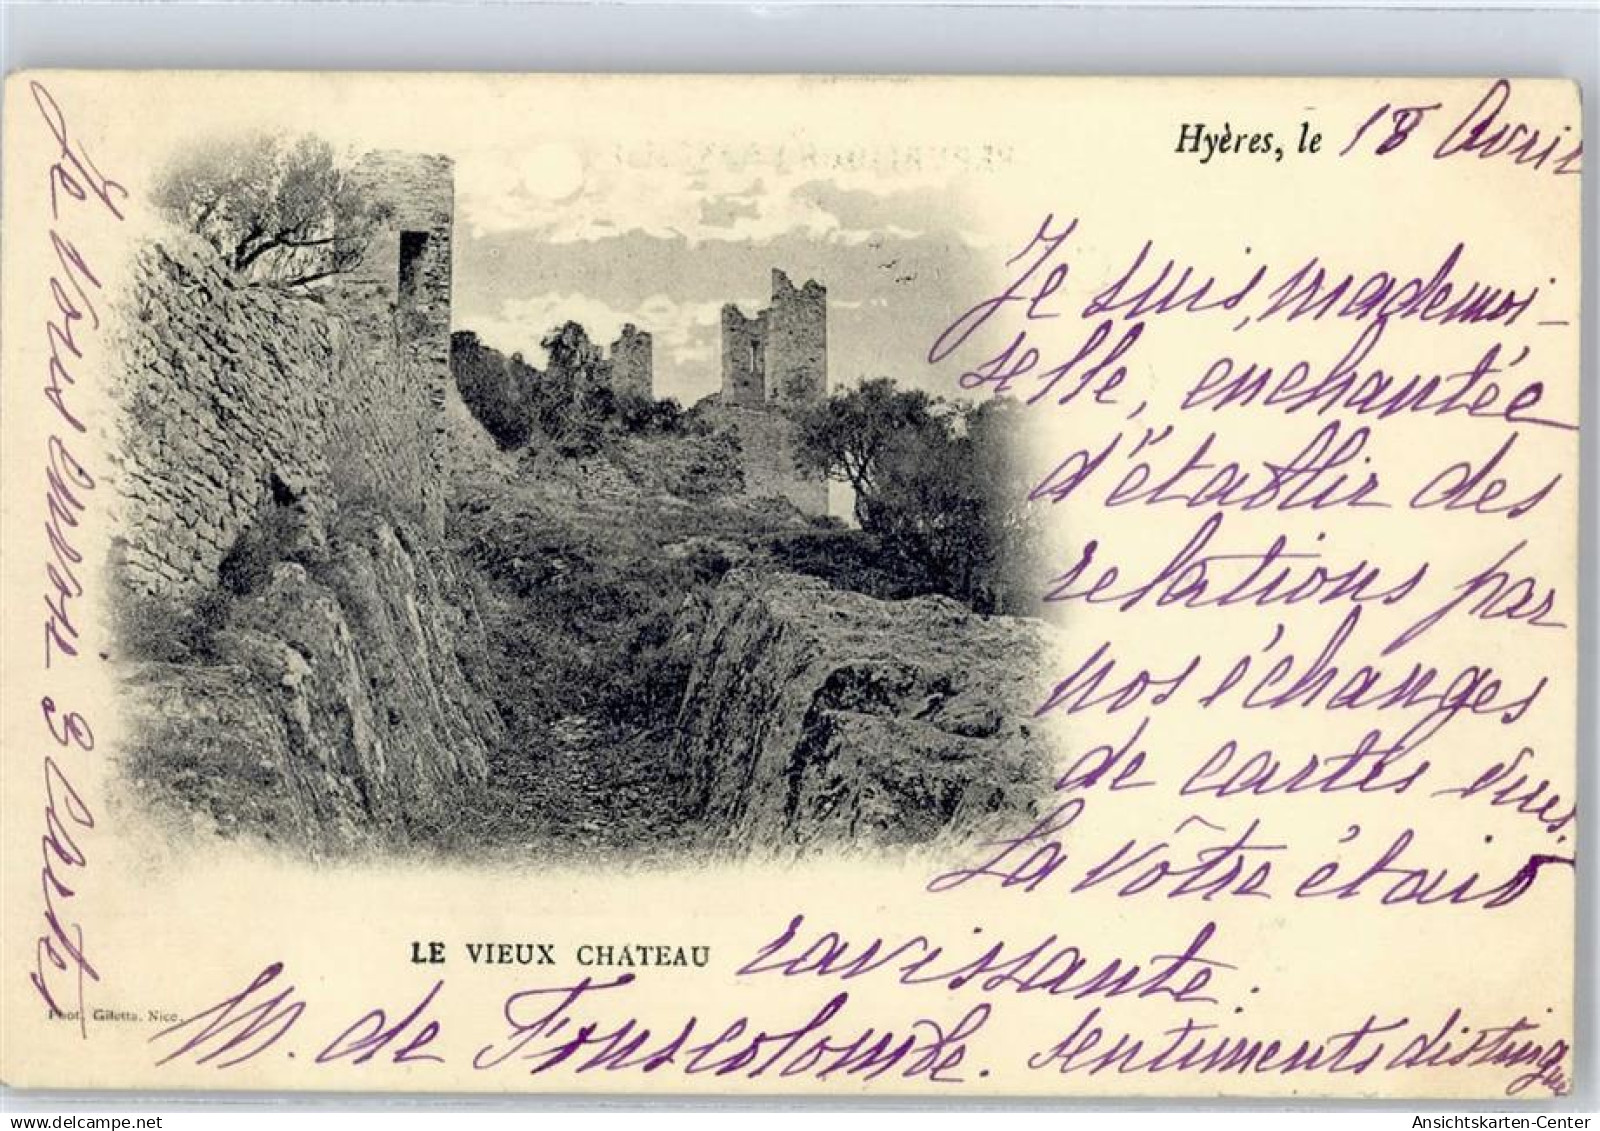 Hyères, le 18 Avril
Je suis, mademoi-
selle, enchantée
d'établir des
relations par
nos échanges
de cartes vues.
La vôtre était
ravissante.
sentiments distingués
M. de Fonscolombe.
Je vous envoie 3 cartes
LE VIEUX CHATEAU
Phot. Giletta. Nice.
Ansichtskarten-Center